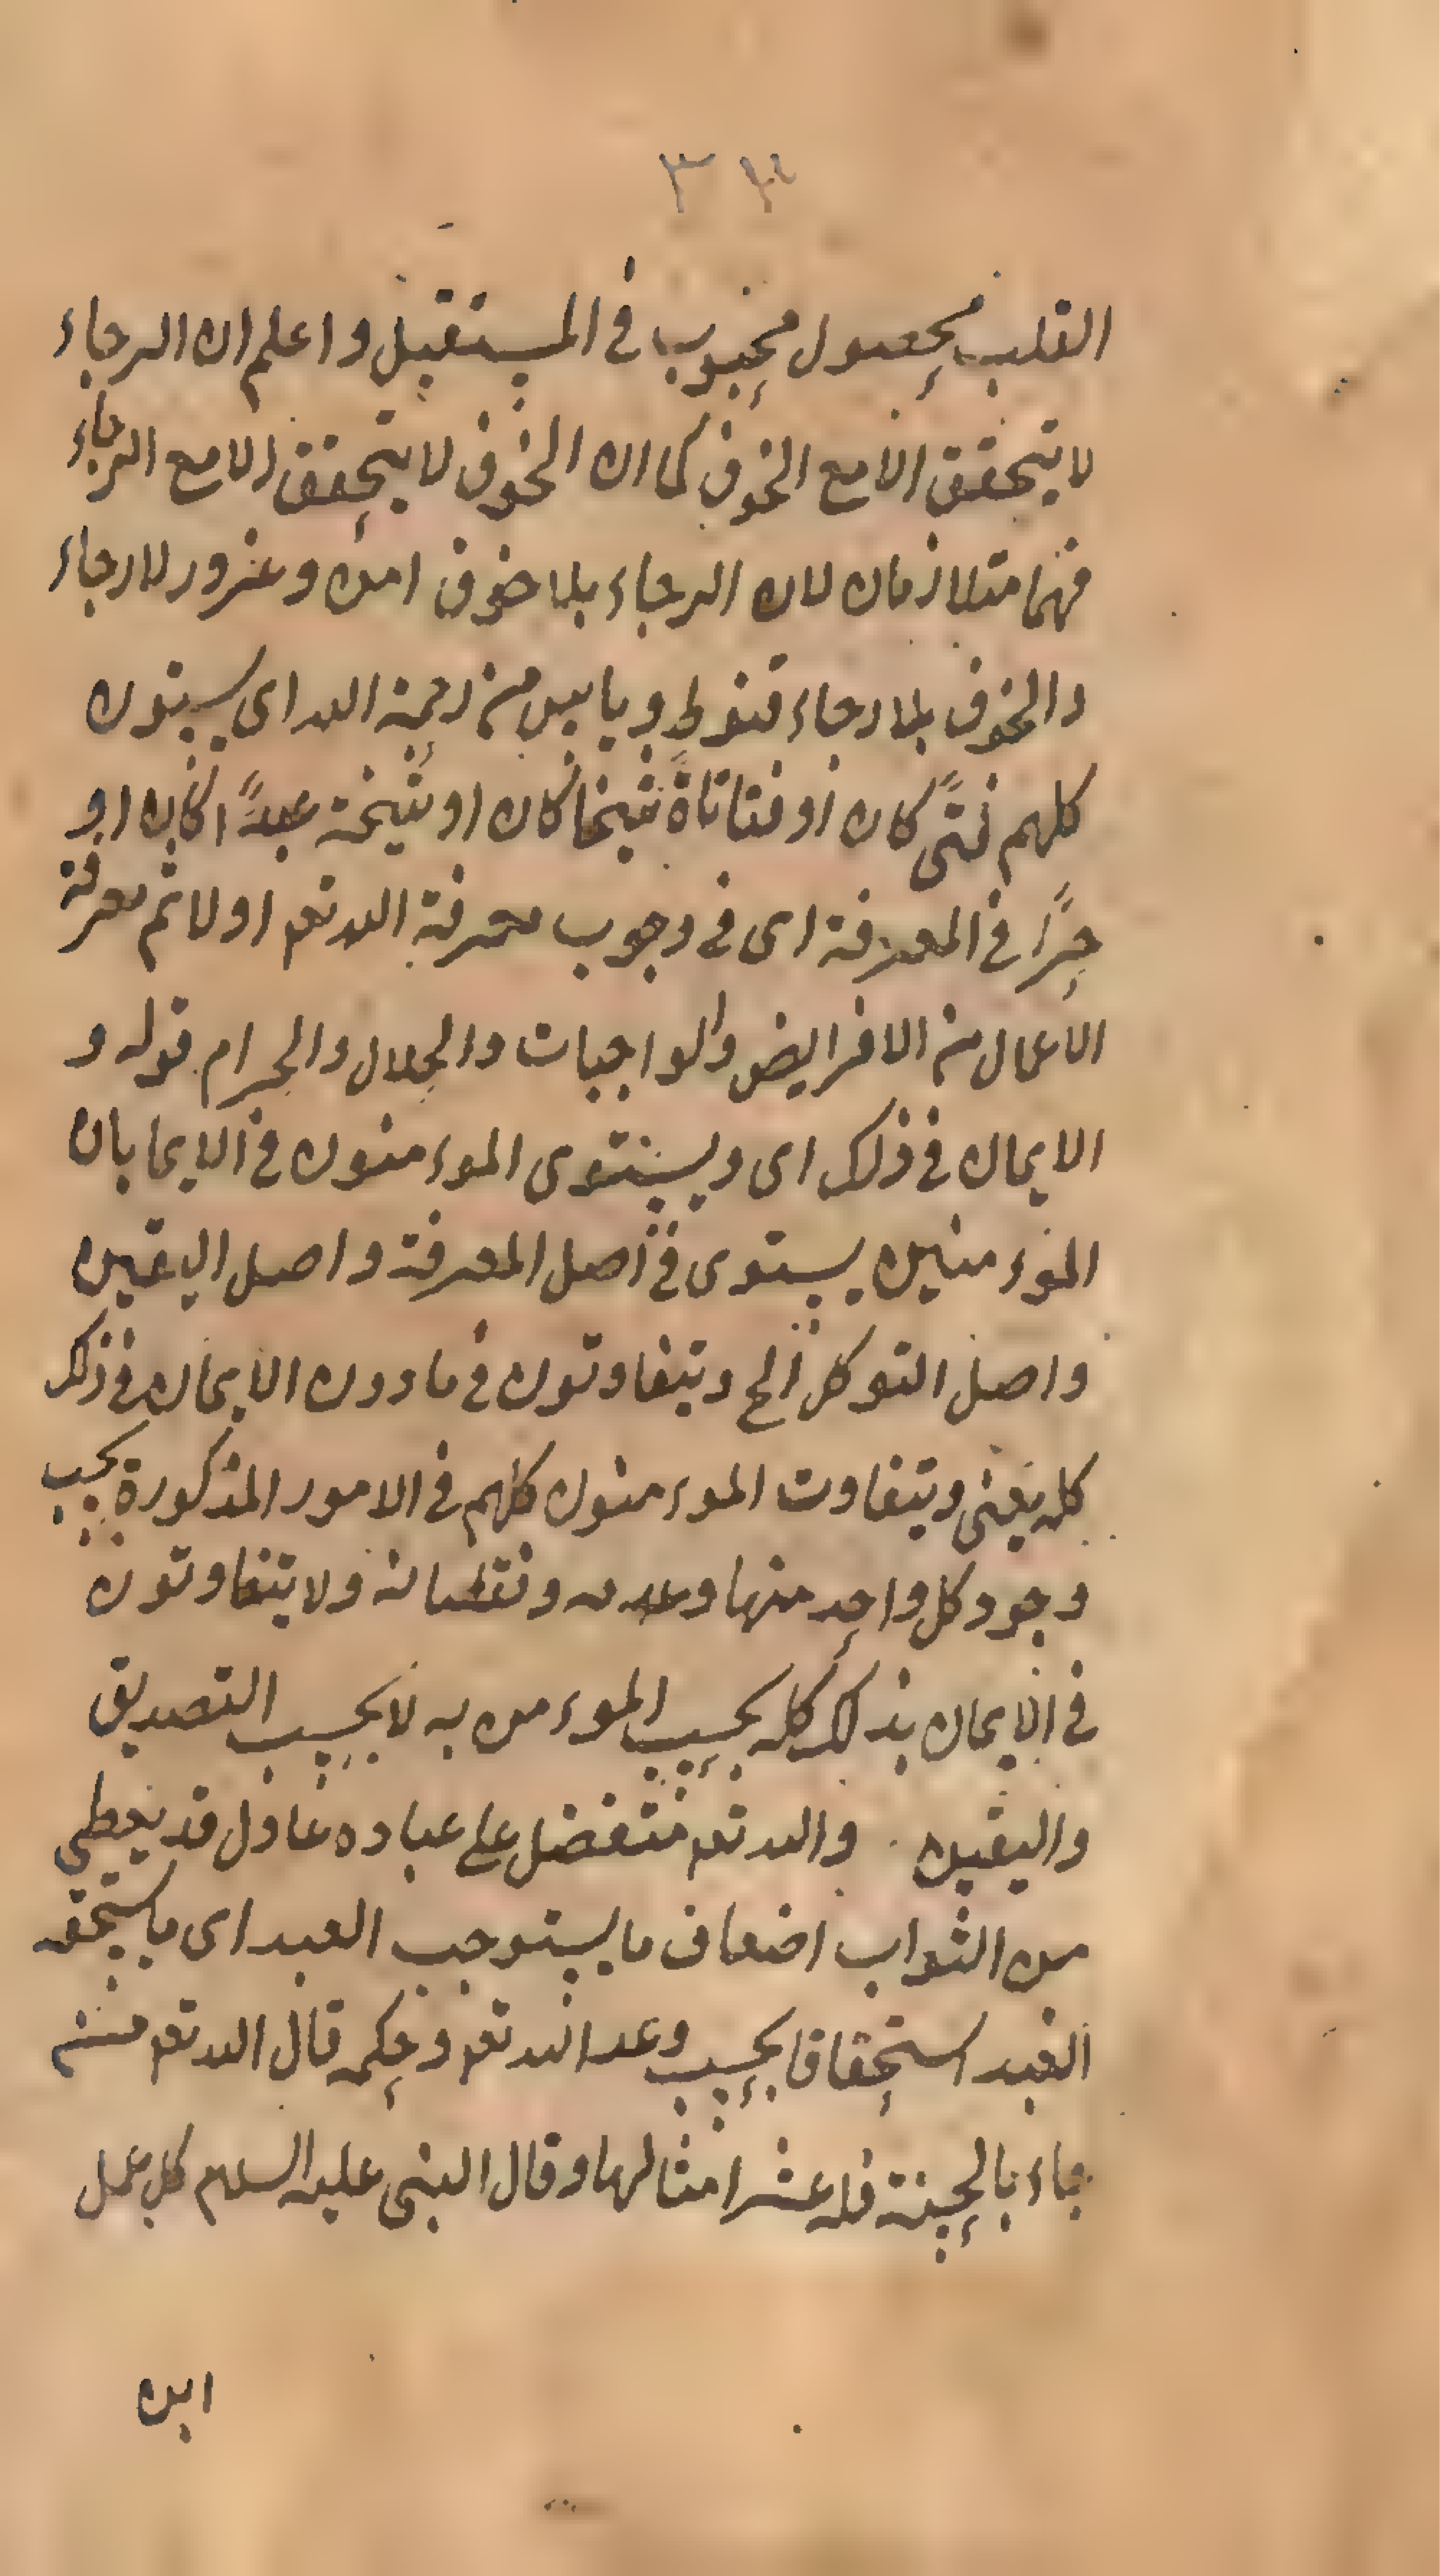 ٣٤
القلب بحصول محبوب في المستقبل واعلم ان الرجاء
لا يتحقق الا مع الخوف كما ان الخوف لا يتحقق الا مع الرجاء
فهما متلازمان لان الرجاء بلا خوف امن وغرور لا رجاء
والخوف بلا رجاء قنوط وياس من رحمة الله اى يستون
كلهم فتًى كان او فتاتاةً شيخا كان او شيخة عبدًا كان او
حرًا في المعرفة اى في وجوب معرفة الله تعم اولا ثم معرفة
الاعمال من الافرايض والواجبات والحلال والحرام قوله و
الايمان في ذلك اى ويستوى الموءمنون في الايما بان
الموءمنين يستوى في اصل المعرفة واصل اليقين
واصل التوكل الخ ويتفاوتون في ما دون الايمان في ذلك
كله يعنى ويتفاوت الموءمنون كلهم في الامور المذكورة بحسب
وجود كل واحد منها وعدمه ونقصانه ولا يتفاوتون
في الايمان بذلك كله بحسب الموءمن به لا بحسب التصديق
واليقين والله تعم متفضل على عباده عادل قد يعطي
من الثواب اضعاف ما يستوجب العبد اى ما يستحقه
العبد استحقاقا بحسب وعد الله تعم وحكمه قال الله تعم من
جاء بالحسنة فله عشر امثالها وقال النبى عليه السلام كل عمل
ابن